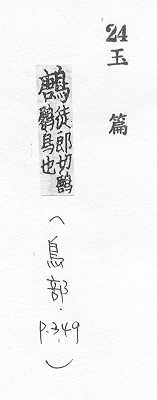 24 玉篇
鶶 徒郎切鶶
鷵鳥也
(鳥部. p.349)